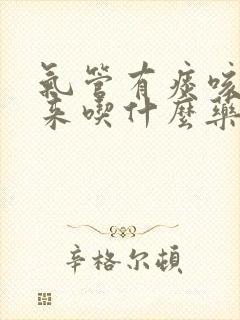 氣管有痰咳
來喫什麼藥
辛格尔頓